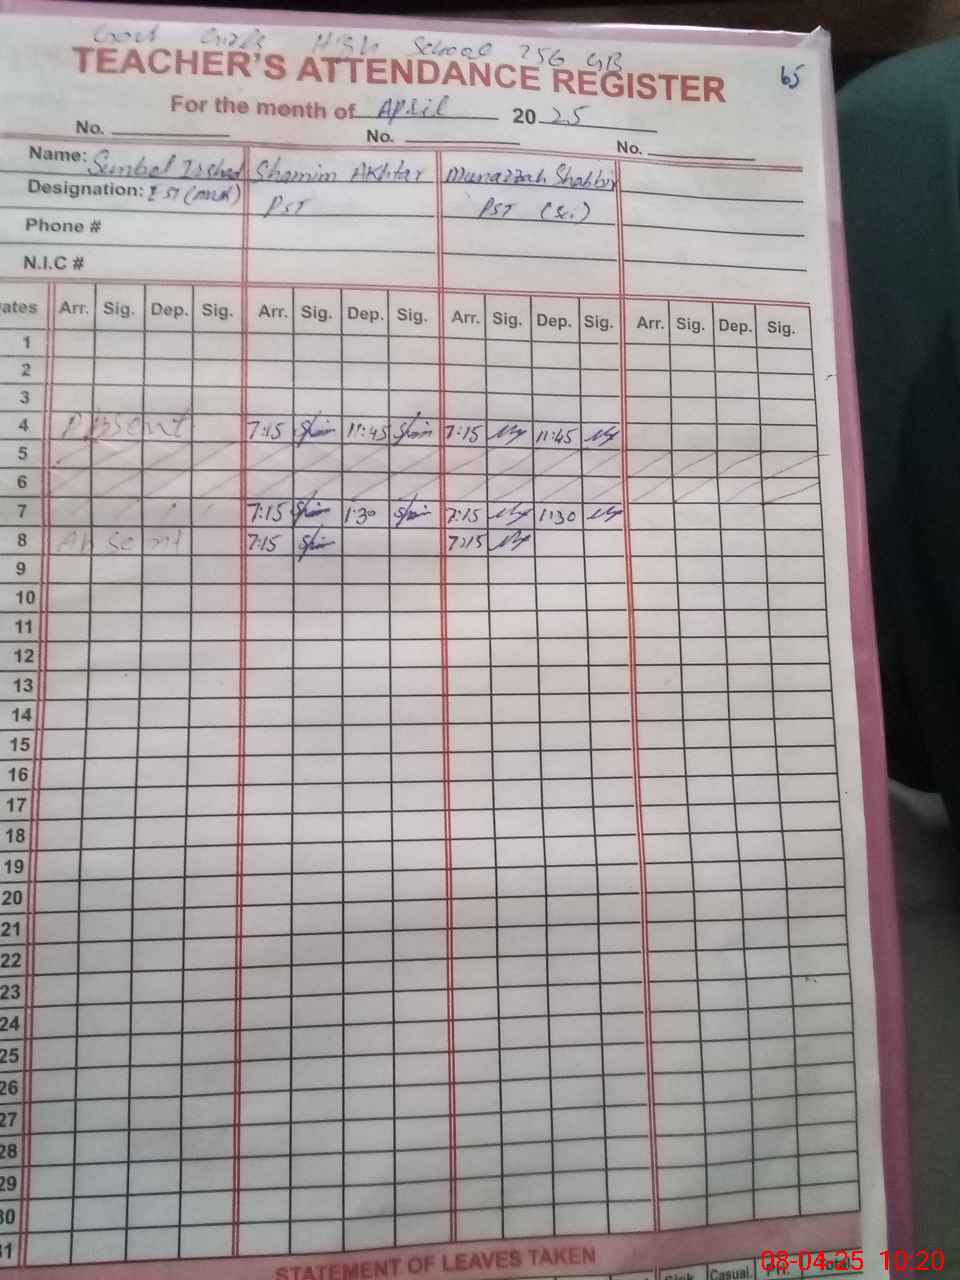 Govt Girls High School 256 GB
TEACHER'S ATTENDANCE REGISTER 65
For the month of April 2025
No. No. No.
Name: Sumbal Irshad Shamim Akhtar Munazzah Shabbir
Designation: EST PST PST (Sci)
Phone #
N.I.C #
ates Arr. Sig. Dep. Sig. Arr. Sig. Dep. Sig. Arr. Sig. Dep. Sig. Arr. Sig. Dep. Sig.
1
2
3
4 Absent 7:15 11:45 7:15 11:45
5
6
7 7:15 1:30 7:15 1:30
8 Absent 7:15 7:15
9
10
11
12
13
14
15
16
17
18
19
20
21
22
23
24
25
26
27
28
29
30
31
STATEMENT OF LEAVES TAKEN
Sick Casual Total
08-04-25 10:20